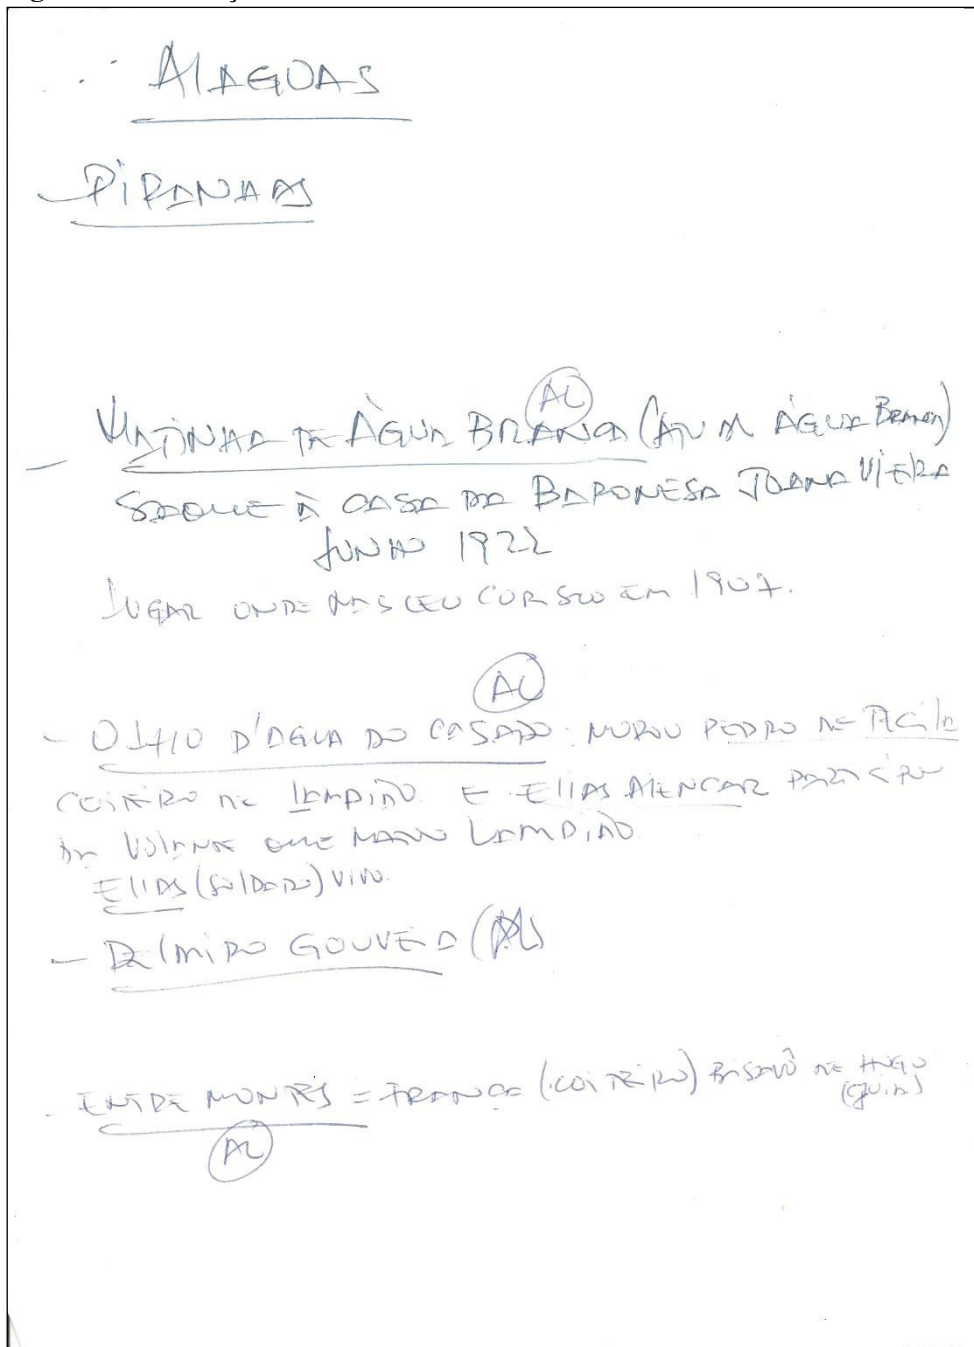 ALAGOAS
- PIRANHAS
AL
- MATINHA DE ÁGUA BRANCA (ATUAL ÁGUA BRANCA)
SAQUE À CASA DA BARONESA JOANA VIEIRA
JUNHO 1922
LUGAR ONDE NASCEU CORISCO EM 1907.
AL
- OLHO D'AGUA DO CASADO: MOROU PEDRO DE
COITEIRO DE LAMPIÃO E ELIAS ALENCAR PARTICIPOU
DA VOLANTE QUE MATOU LAMPIÃO
ELIAS (SOLDADO) VIVO.
- DELMIRO GOUVEIA (AL)
. ENTRE MONTES = FRANÇA (COITEIRO) BISAVÔ DE HUGO
(GUIA)
AL